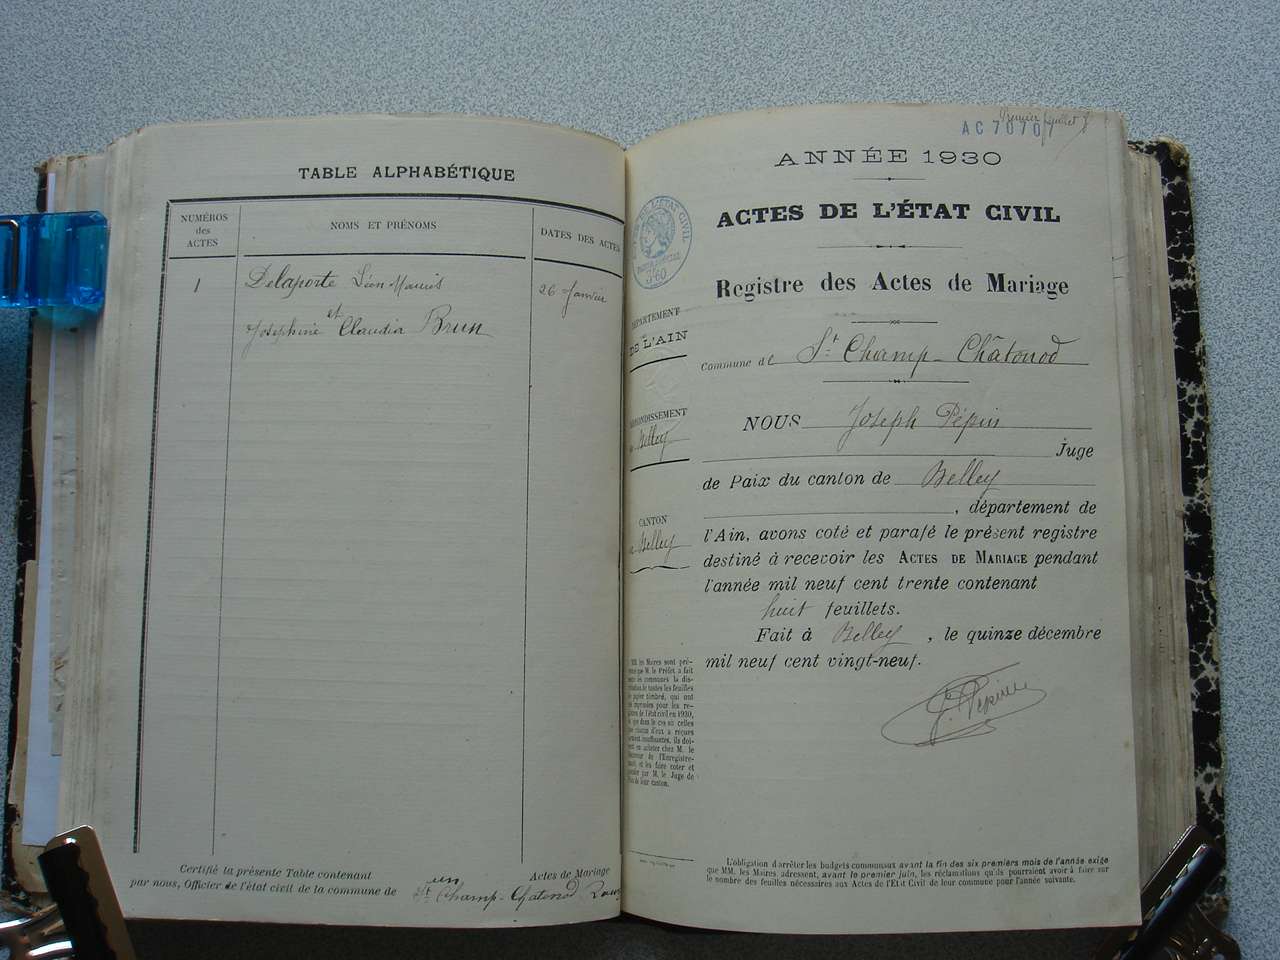 TABLE ALPHABÉTIQUE
NUMÉROS
des
ACTES
NOMS ET PRÉNOMS
DATES DES ACTES
1
Delaporte Léon Mauris
26 Janvier
et
Joséphine Claudia Brun
Certifié la présente Table contenant
un
Actes de Mariage
par nous, Officier de l'état civil de la commune de St Champ-Chatonod
Premier feuillet
AC 7070
ANNÉE 1930
ACTES DE L'ÉTAT CIVIL
Registre des Actes de Mariage
DÉPARTEMENT
DE L'AIN
Commune de St Champ-Châtonod
ARRONDISSEMENT
de Belley
CANTON
de Belley
NOUS Joseph Pépin
Juge
de Paix du canton de Belley
, département de
l'Ain, avons coté et parafé le présent registre
destiné à recevoir les ACTES DE MARIAGE pendant
l'année mil neuf cent trente contenant
huit feuillets.
Fait à Belley, le quinze décembre
mil neuf cent vingt-neuf.
J. Pépin
MM. les Maires sont pré-
que M. le Préfet a fait
les communes la dis-
de toutes les feuilles
papier timbré, qui ont
imprimées pour les re-
de l'état civil en 1930,
que dans le cas où celles
chacun d'eux a reçues
insuffisantes, ils doi-
en acheter chez M. le
Receveur de l'Enregistre-
et les faire coter et
par M. le Juge de
Paix de leur canton.
L'obligation d'arrêter les budgets communaux avant la fin des six premiers mois de l'année exige
que MM. les Maires, adressent, avant le premier juin, les réclamations qu'ils pourraient avoir à faire sur
le nombre des feuilles nécessaires aux Actes de l'Etat Civil de leur commune pour l'année suivante.